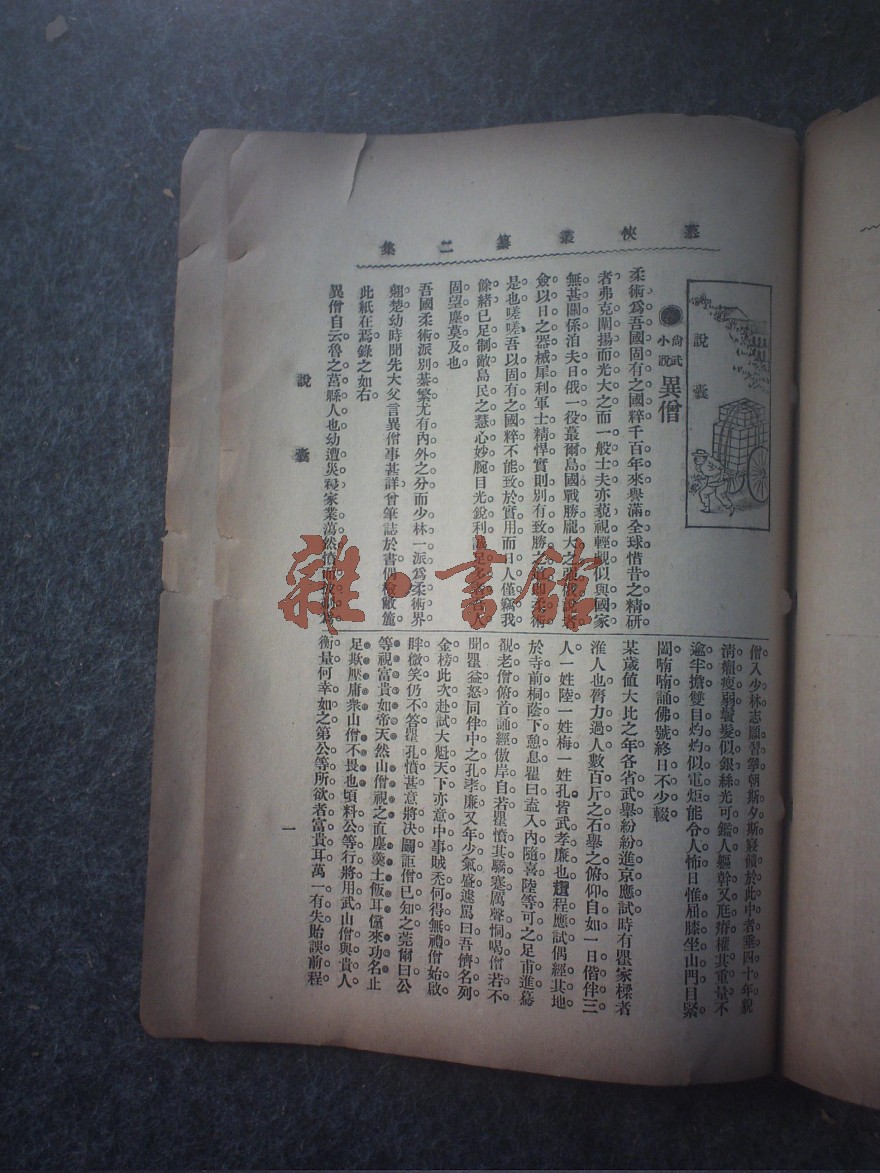 藝俠叢纂二集
說囊
尚武小說 異僧
柔術爲吾國固有之國粹千百年來譽滿全球惜昔之精研
者弗克闡揚而光大之而一般士夫亦藐視輕覷似與國家
無甚關係洎夫日俄一役蕞爾島國戰勝龐大之強俄說者
僉以日之器械犀利軍士精悍實則別有致勝之道即柔術
是也嗟嗟吾以固有之國粹不能致於實用而日人僅竊我
餘緒已足制敵島民之慧心妙腕目光銳利誠足多者吾人
固望塵莫及也
吾國柔術派別綦繁尤有內外之分而少林一派爲柔術界
翹楚幼時聞先大父言異僧事甚詳曾筆誌於書偶檢敝簏
此紙在焉錄之如右
異僧自云魯之莒縣人也幼遭災祲家業蕩然憤而
僧入少林志願習學朝斯夕斯寢饋於此中者垂四十年貌
清癯瘦弱鬢髮似銀絲光可鑑人軀幹又尫瘠權其重量不
逾半擔雙目灼灼似電炬能令人怖日惟屈膝坐山門目緊
闔喃喃誦佛號終日不少輟
某歲值大比之年各省武舉紛紛進京應試時有瞿家樑者
淮人也膂力過人數百斤之石舉之俯仰自如一日偕伴三
人一姓陸一姓梅一姓孔皆武孝廉也趲程應試偶經其地
於寺前桐蔭下憩息瞿曰盍入內隨喜陸等可之足甫進驀
覩老僧俯首誦經傲岸自若瞿憤其驕蹇厲聲恫喝僧若不
聞瞿益怒同伴中之孔孝廉又年少氣盛遽罵曰吾儕名列
金榜此次赴試大魁天下亦意中事賊禿何得無禮僧始啟
眸微笑仍不答瞿孔憤甚意將決鬭詎僧已知之莞爾曰公
等視富貴如帝天然山僧視之直塵羹土飯耳儻來功名止
足欺壓庸衆山僧不畏也頃料公等行將用武山僧與貴人
衡量何幸如之第公等所欲者富貴耳萬一有失貽誤前程
說囊
一
雜·書館